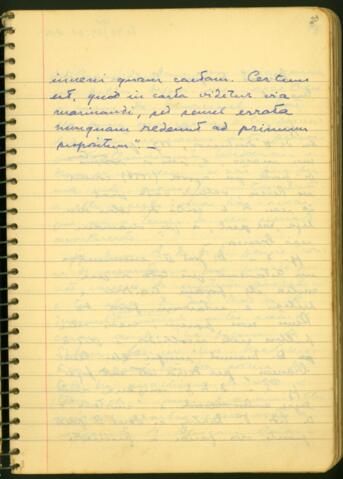 inveni quam caetam. Certum
est, quod in carta videtur via
marinandi, sed semel errata
nunquam redeunt ad primum
propositum". —